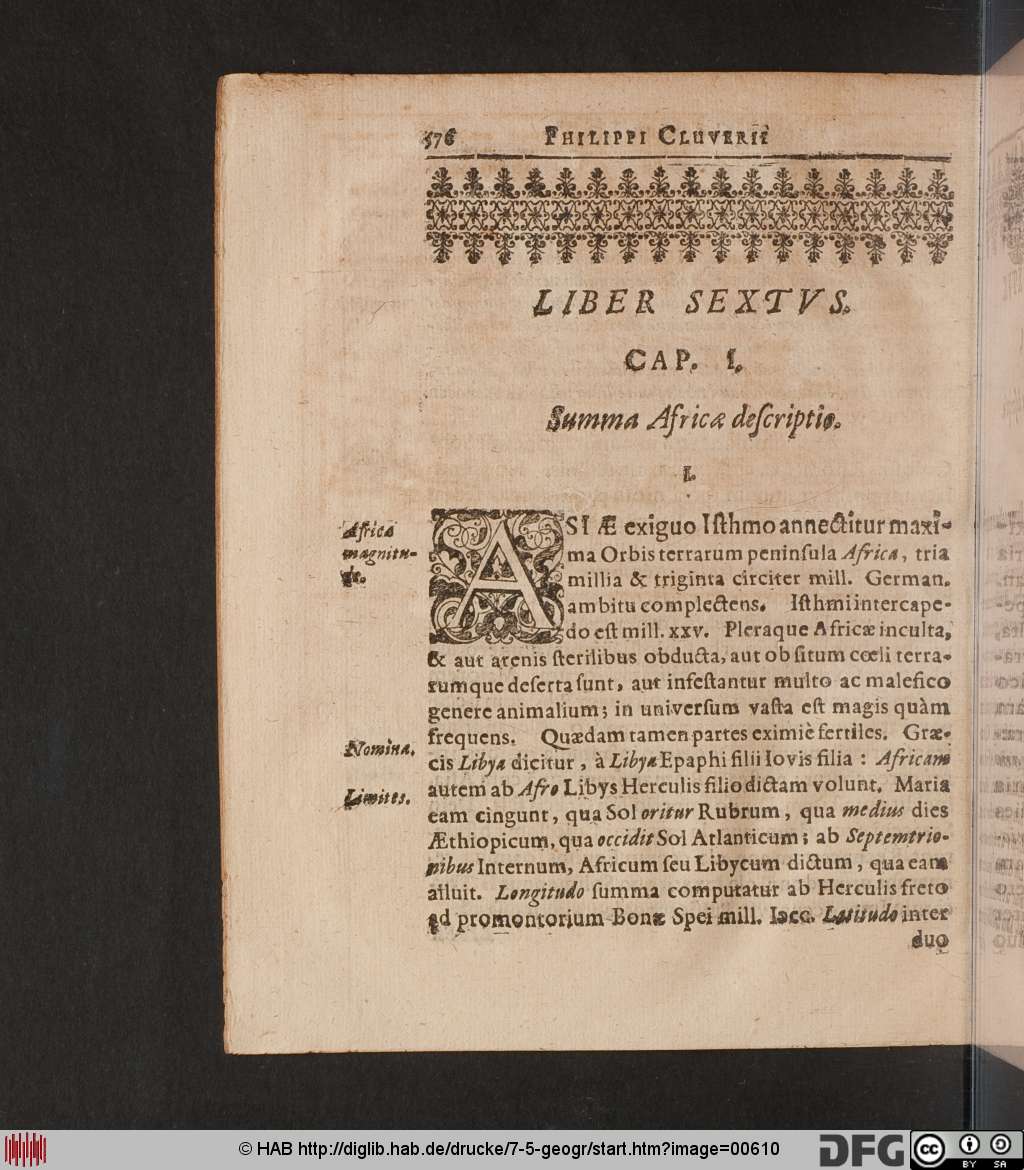 576 PHILIPPI CLUVERII
LIBER SEXTVS.
CAP. I.
Summa Africæ deſcriptio.
I.
Africæ
magnitu-
de.
ASIÆ exiguo Iſthmo annectitur maxi-
ma Orbis terrarum peninſula Africa, tria
millia & triginta circiter mill. German.
ambitu complectens. Iſthmi intercape-
do eſt mill. xxv. Pleraque Africæ inculta,
& aut arenis ſterilibus obducta, aut ob ſitum cœli terra-
rumque deſerta ſunt, aut infeſtantur multo ac malefico
genere animalium; in univerſum vaſta eſt magis quàm
Nomina.
frequens. Quædam tamen partes eximiè fertiles. Græ-
cis Libya dicitur, à Libya Epaphi filii Iovis filia: Africam
Limites.
autem ab Afro Libys Herculis filio dictam volunt. Maria
eam cingunt, qua Sol oritur Rubrum, qua medius dies
Æthiopicum, qua occidit Sol Atlanticum; ab Septemtrio-
nibus Internum, Africum ſeu Libycum dictum, qua eam
alluit. Longitudo ſumma computatur ab Herculis freto
ad promontorium Bonæ Spei mill. Latitudo inter
duo
© HAB http://diglib.hab.de/drucke/7-5-geogr/start.htm?image=00610
DFG
cc
BY SA